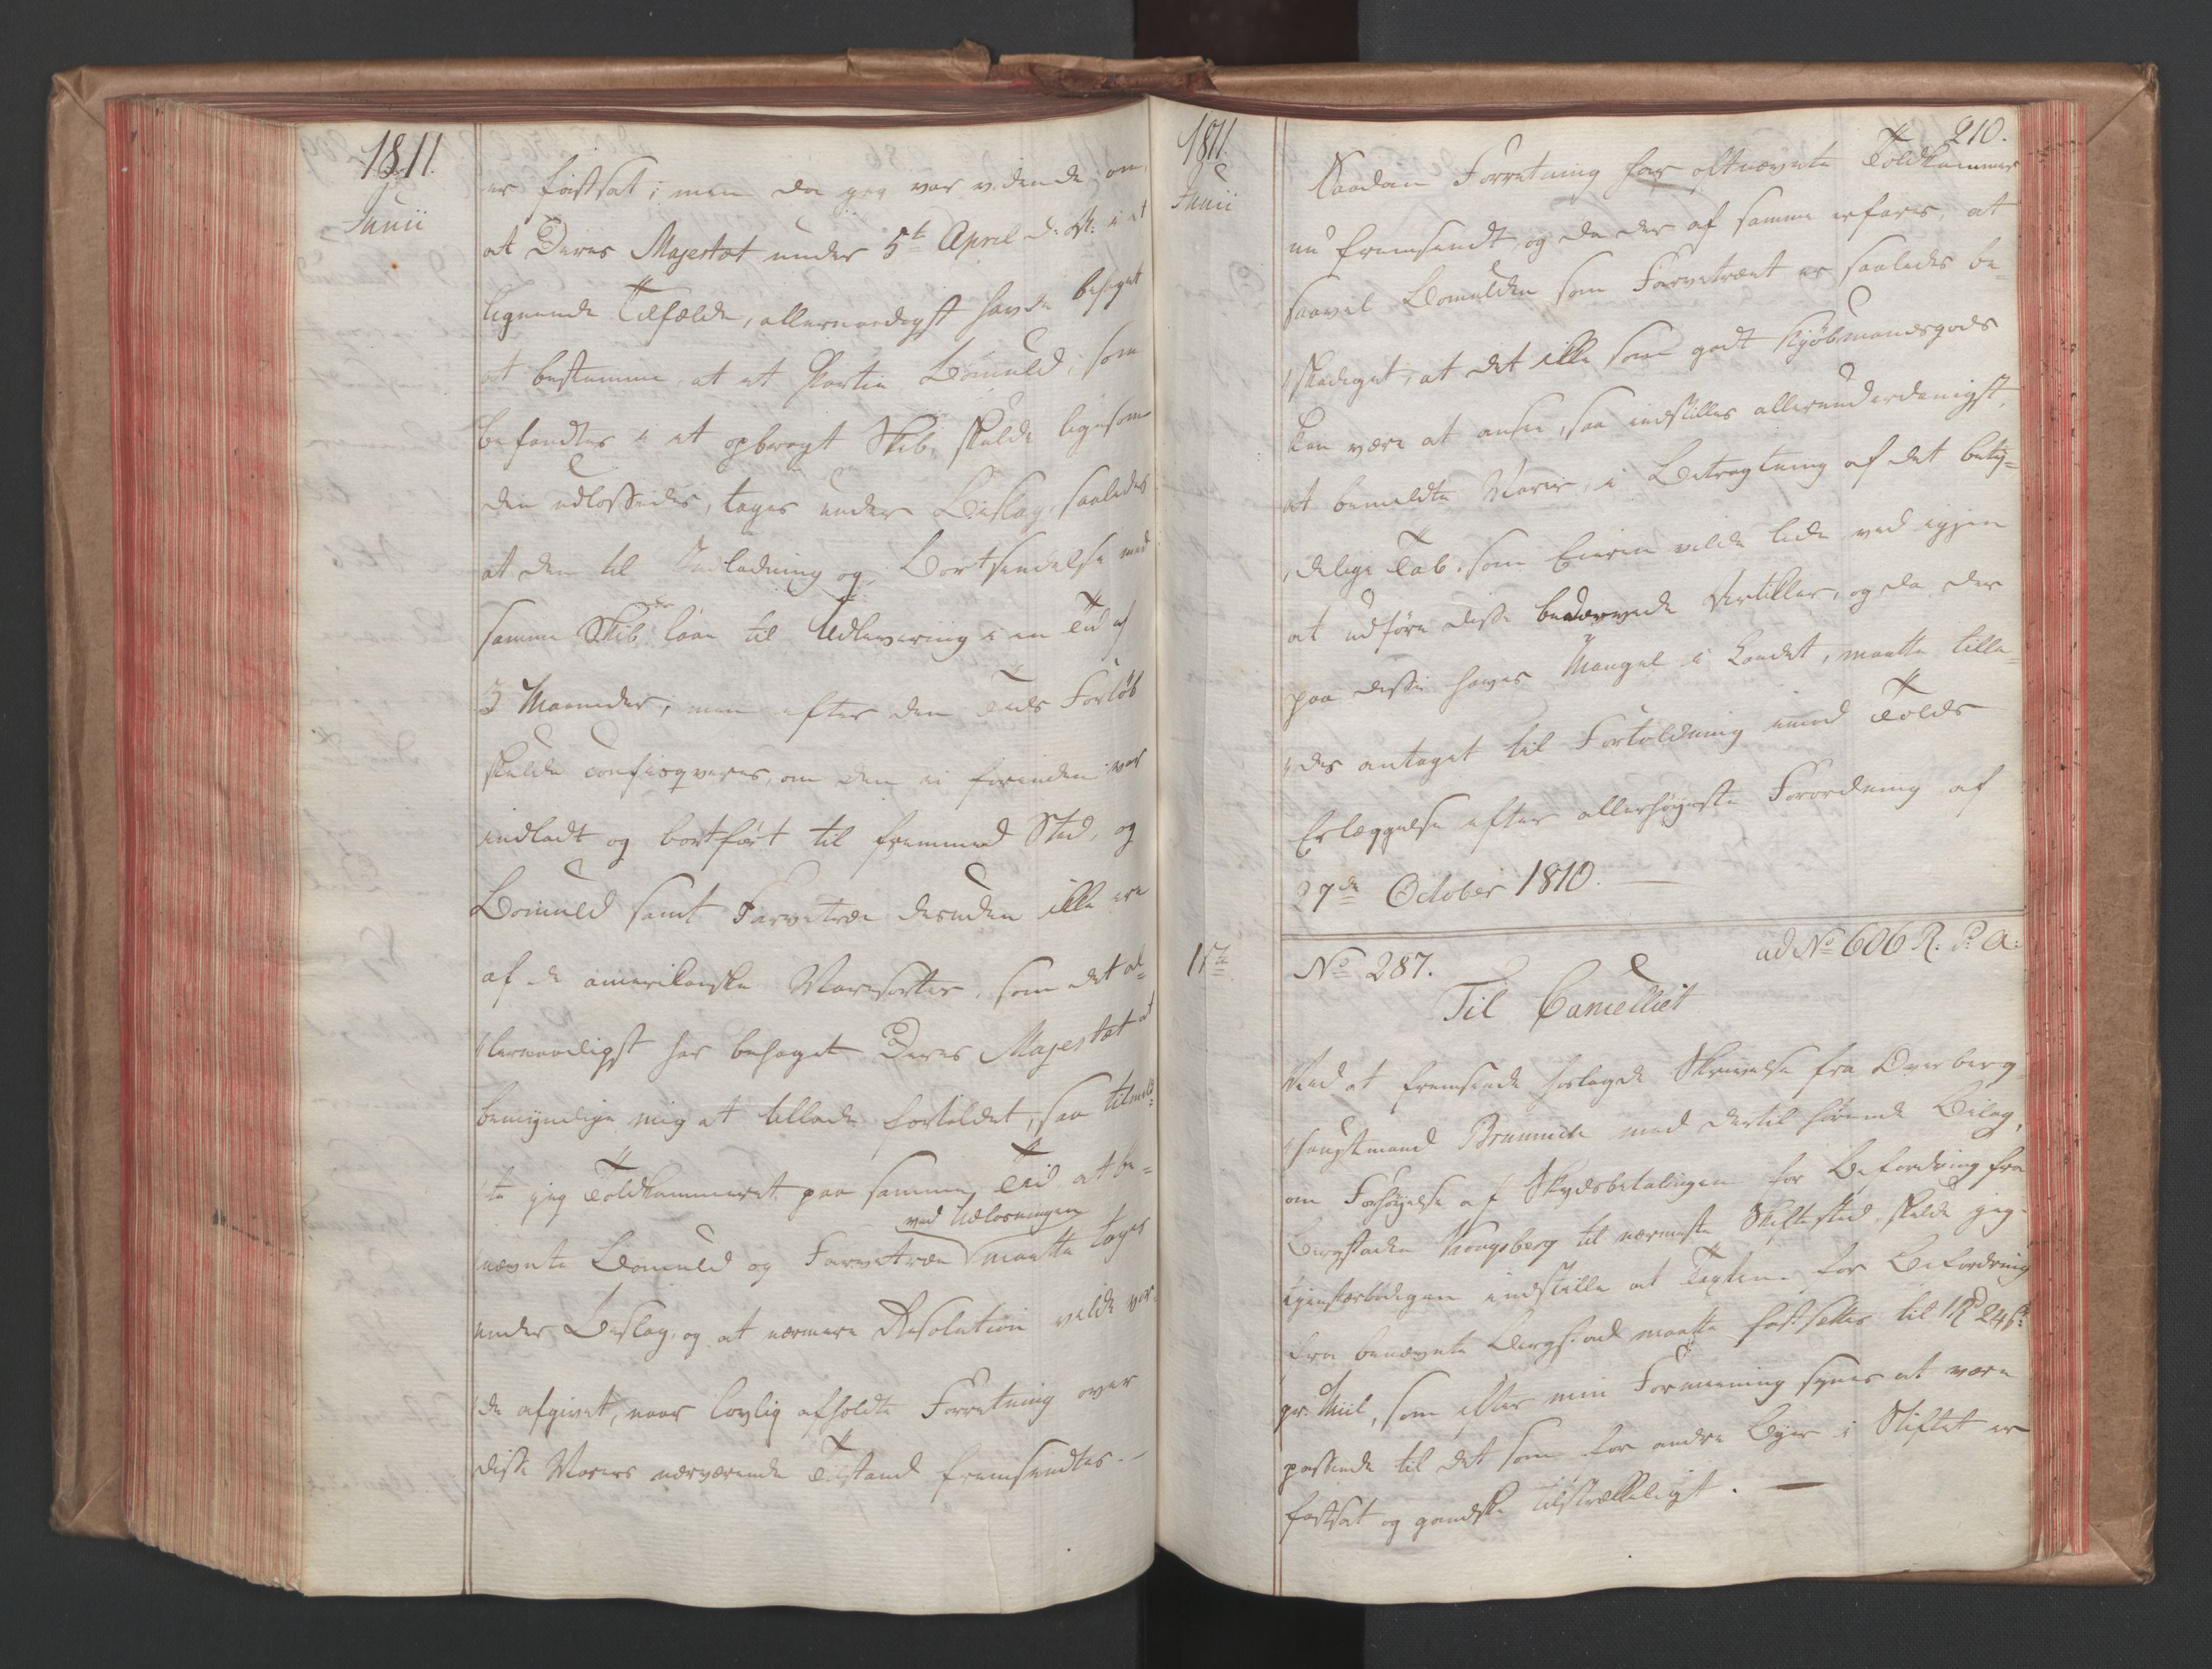 1811.
Junii
er fastsat; men da jeg var vidende om,
at Deres Majestæt under 5te April d: A: i et
lignende Tilfælde, allernaadigst havde behaget
at bestemme, at et Partie Bomuld, som
befandtes i et opbragt Skib, skulde ligesom
den udlossedes, tages under Beslag, saaledes
at den til Indladning og Bortsendelse med
samme Skib laae til Udlevering i en Tid af
3 Maaneder, men efter den Tids Forløb
skulde confisqveres, om den ei forinden var
indladt og bortført til fremmed Sted, og
Bomuld samt Farvetræe desuden ikke ere
af de amerikanske Varesorter, som det al=
lernaadigst har behaget Deres Majestæt at
bemyndige mig at tillade fortoldet, saa tilmeld=
te jeg Toldkammeret paa samme Tid at be=
ved Udlosningen
nævnte Bomuld og Farvetræe maatte tages
under Beslag, og at nærmere Resolution vilde vor=
de afgivet, naar lovlig afholdte Forretning over
disse Varers nærværende Tilstand fremsendtes. -
1811.
Junii
210.
Saadan Forretning har oftnævnte Toldkammer
nu fremsendt, og da der af samme erfares, at
saavel Bomulden som Farvetræet er saaledes be=
skadiget, at det ikke som godt Kjøbmandsgods
kan være at ansee, saa indstilles allerunderdanigst,
at bemeldte Varer, i Betragtning af det bety=
delige Tab, som Eieren vilde lide ved igjen
at udføre disse bedærvede Artikler, og da der
paa disse haves Mangel i Landet, maatte tilla=
des antaget til Fortoldning imod Tolds
Erlæggelse efter allerhøyeste Forordning af
27de October 1810. —
15de
No 287.
ad No 606 R: P: A:
Til Cancelliet
Ved at fremsende hoslagde Skrivelse fra Overberg
hauptmand Brunnich med dertil hørende Bilag,
om Forhøyelse af Skydsbetalingen for Befordring fra
Bergstaden Kongsberg til nærmeste Skiftested, skulde jeg
tjenstærbødigen indstille at Taxten for Befordring
fra benævnte Bergstad maatte fastsættes til 1 Rd 24 s:
pr. Miil, som efter min Formeening synes at være
passende til det som for andre Byer i Stiftet er
fastsat og gandske tilstrækkeligt. —